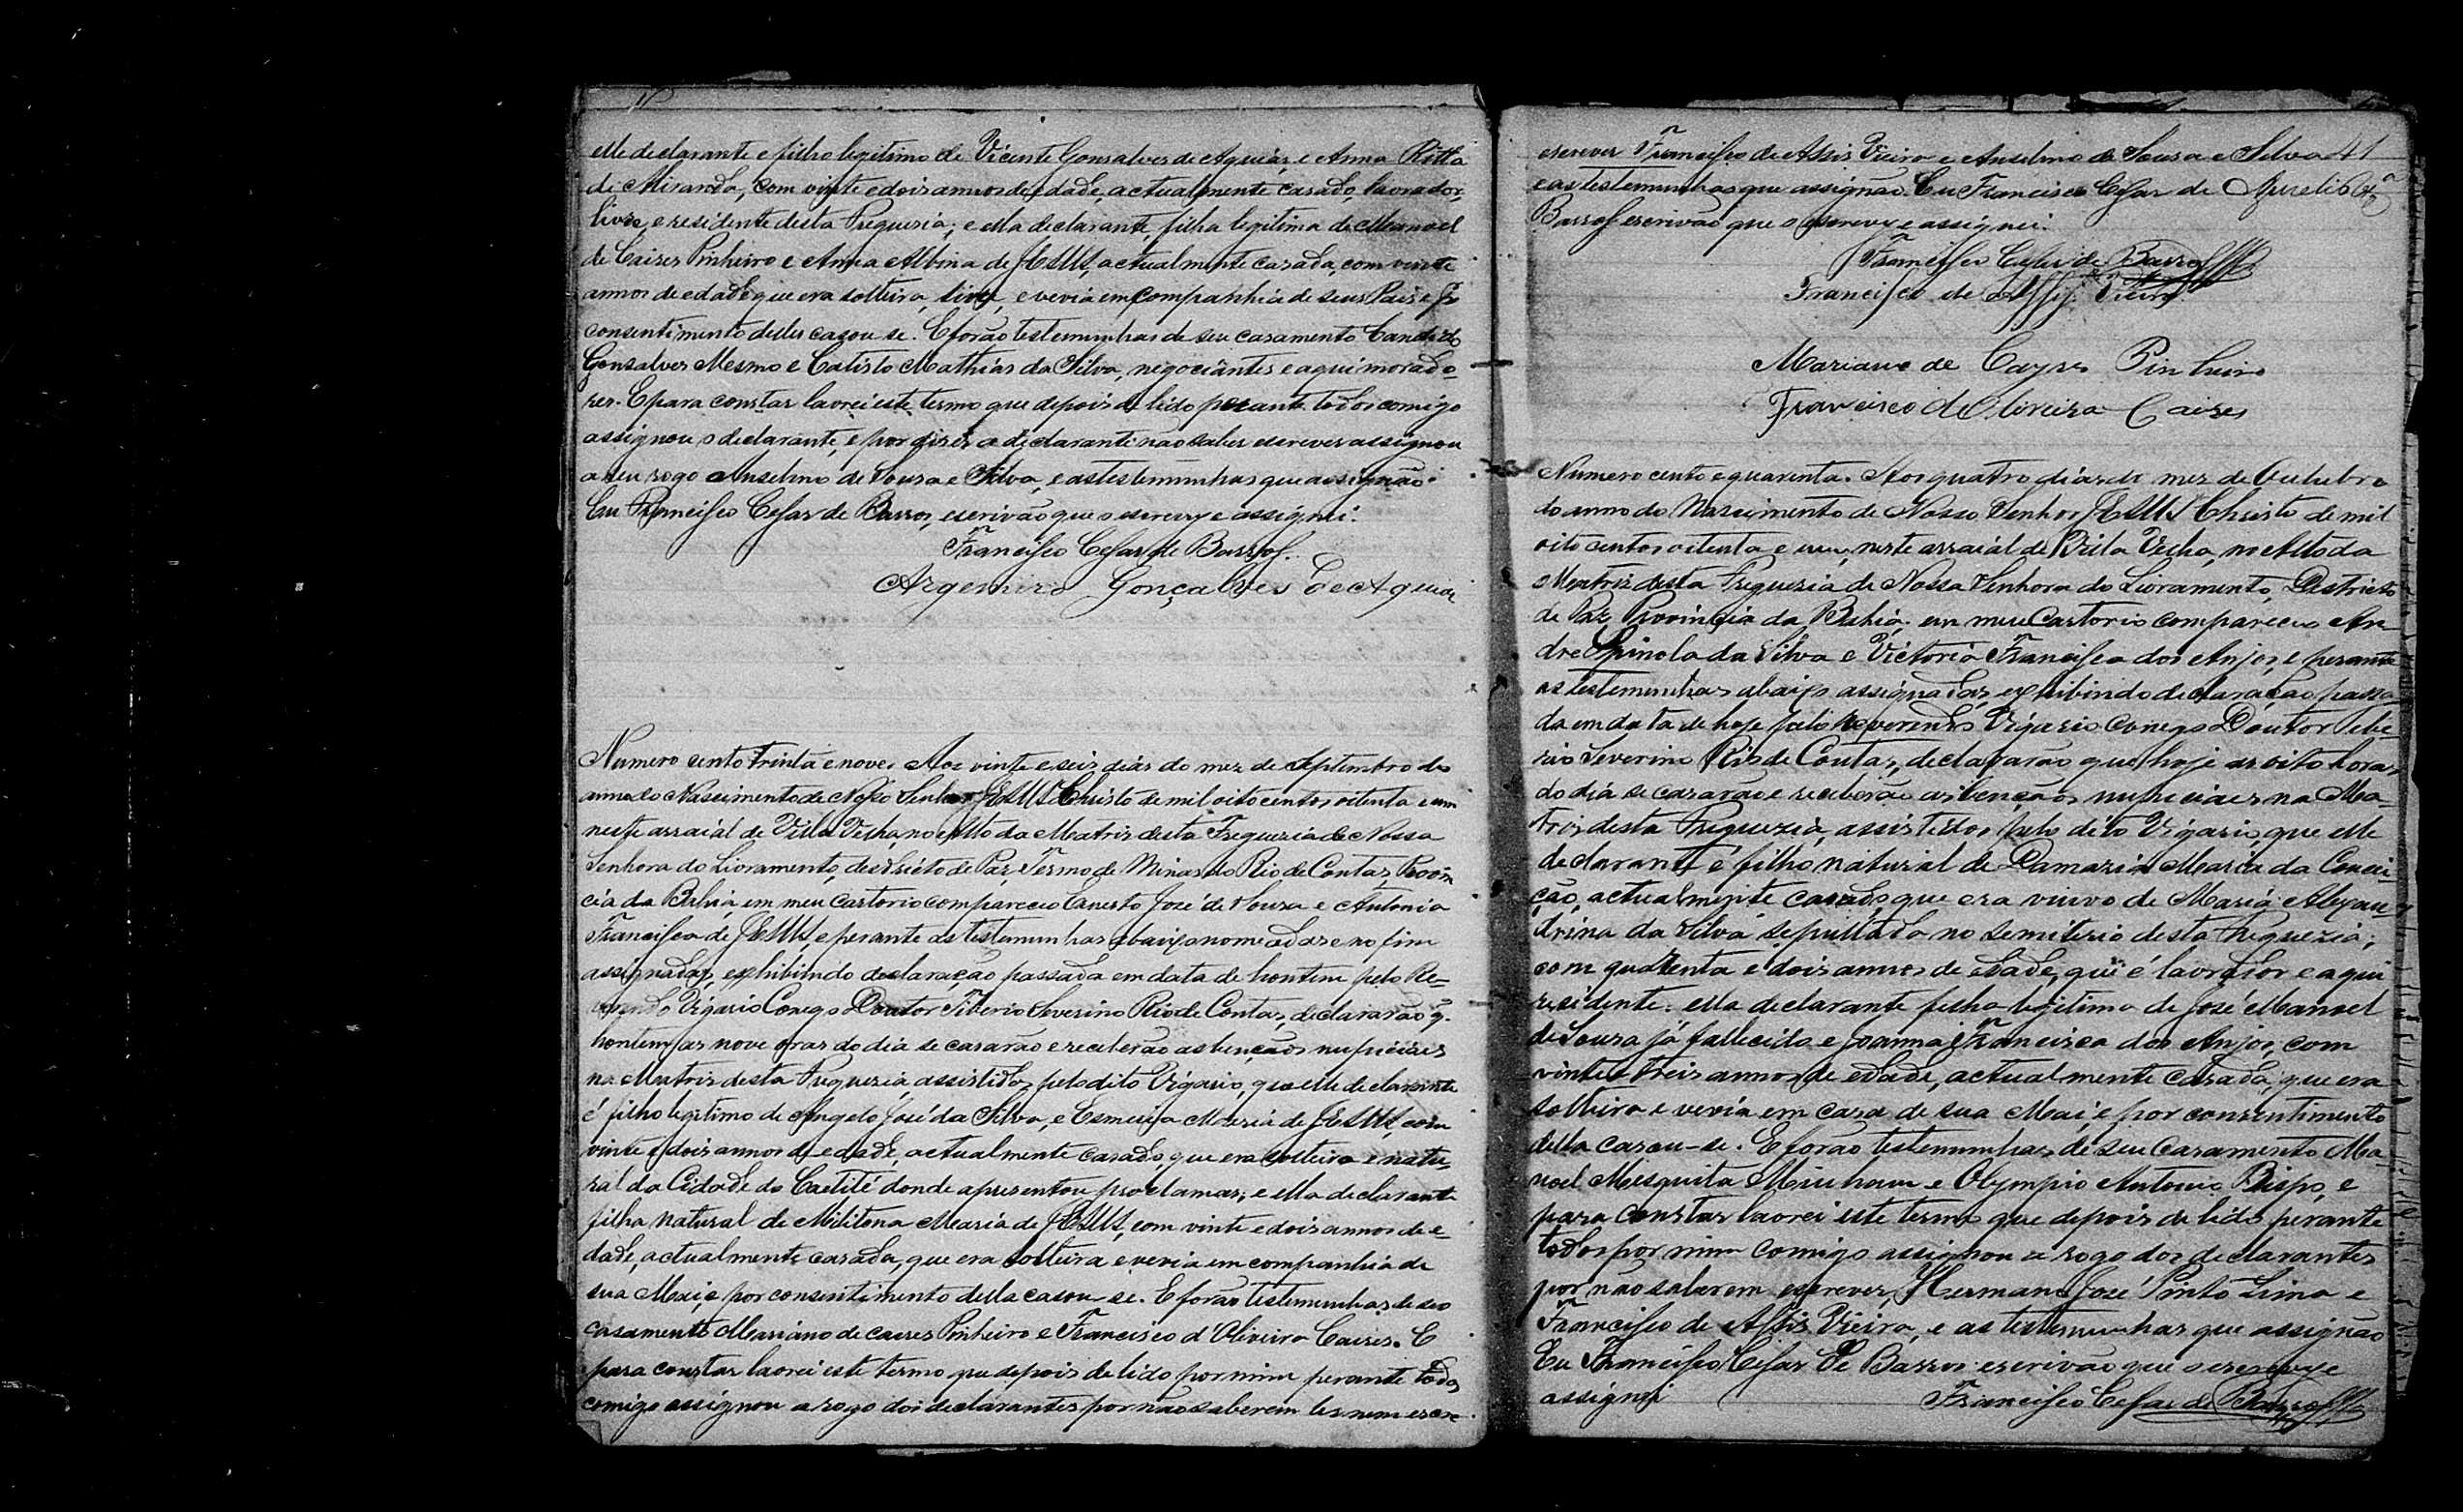 elle declarante e filho legitimo de Vicente Gonsalves de Aguiar, e Anna Ritta
de Miranda, com vinte e dois annos de edade, actualmente casado, lavrador,
livre, e residente desta Freguesia; e ella declarante, filha legitima de Manoel
de Caires Pinheiro e Anna Albina de JESUS, actualmente casada, com vinte
annos de edade que era solteira, livre, e vevia em companhia de seus Pais e por
consentimento delles casou se. E forão testemunhas de seu casamento Candido
Gonsalves Mesmo e Calisto Mathias da Silva, negociantes e aqui morado-
res. E para constar lavrei este termo que depois de lido perante todos comigo
assignou o declarante, e por diser a declarante não saber escrever assignou
a seu rogo Anselmo de Sousa e Silva, e as testemunhas que assignão.
Eu Francisco Cesar de Barros, escrivão que o escrevy e assignei.
Francisco Cesar de Barros.
Argemiro Gonçalves de Aguiar
Numero cento trinta e nove. Aos vinte e seis dias do mez de Septembro do
anno do Nascimento de Nosso Senhor JESUS Christo de mil oito centos oitenta e um
neste arraial de Villa Velha, no Alto da Matris desta Freguezia de Nossa
Senhora do Livramento, destricto de Paz, Termo de Minas do Rio de Contas, Provin
cia da Bahia, em meu cartorio compareceo Canesto José de Sousa e Antonia
Francisca de JESUS, e perante as testemunhas abaixo nomeadas e no fim
assignadas, exhibindo declaração passada em data de hontem pelo Re-
verendo Vigario Conego Doutor Tiberio Severino Rio de Contas, declararão q.
hontem as nove oras do dia se casarão e receberão as bençãos nupciaes
na Matris desta Freguesia, assistidos pelo dito Vigario, que elle declarante
é filho legitimo de Angelo José da Silva, e Esmeria Maria de JESUS, com
vinte e dois annos de edade, actualmente casado, que era solteiro e natu
ral da Cidade do Caetité donde apresentou proclamas; e ella declarante
filha natural de Militona Maria de JESUS, com vinte e dois annos de e-
dade, actualmente casada, que era solteira e vevia em companhia de
sua Mai, e por consentimento della casou se. E forão testemunhas de seo
casamento Mariano de Caires Pinheiro e Francisco d'Oliveira Caires. E
para constar lavrei este termo que depois de lido por mim perante todos
comigo assignou a rogo dos declarantes por não saberem ler nem escre
escrever Francisco de Assis Vieira e Anselmo de Sousa e Silva 41
e as testemunhas que assignão. Eu Francisco Cesar de Aurelio
Barros escrivão que o escrevy e assignei.
Francisco Cesar de Barros
Francisco de Assis Vieira
Mariano de Cayres Pinheiro
Francisco d Oliveira Caires
Numero cento e quarenta. Aos quatro dias do mez de Outubro
do anno do Nascimento de Nosso Senhor JESUS Christo de mil
oito centos oitenta e um, neste arraial de Villa Velha, no Alto da
Matriz desta Freguezia de Nossa Senhora do Livramento, Destricto
de Paz, Provincia da Bahia em meu Cartorio compareceo An-
dre Spinola da Silva e Victoria Francisca dos Anjos, e perante
as testemunhas abaixo assignadas, exhibindo declaração passa
da em data de hoje pelo Reverendo Vigario Conego Doutor Tibe-
rio Severino Rio de Contas, declararão que hoje as oito horas
do dia se casarão e receberão as bençãos nupciaes na Ma-
tris desta Freguezia, assistidos pelo dito Vigario, que elle
declarante é filho natural de Damazia Maria da Concei-
ção, actualmente casado, que era viuvo de Maria Alexan
drina da Silva sepultada no semiterio desta Freguezia;
com quarenta e dois annos de edade, que é lavrador e aqui
residente: ella declarante filha legitima de José Manoel
de Sousa já fallecido e Joanna Francisca dos Anjos, com
vinte e treis annos de edade, actualmente casada, que era
solteira e vevia em casa de sua Mai, e por consentimento
della casou-se. E forão testemunhas de seu casamento Ma-
noel Mesquita Minhou e Olympio Antonio Bispo, e
para constar lavrei este termo que depois de lido perante
todos por mim comigo assignou a rogo dos declarantes
por não saberem escrever, Hermano José Pinto Lima e
Francisco de Assis Vieira, e as testemunhas que assignão
Eu Francisco Cesar de Barros escrivão que o escrevy e
assignei Francisco Cesar de Barros